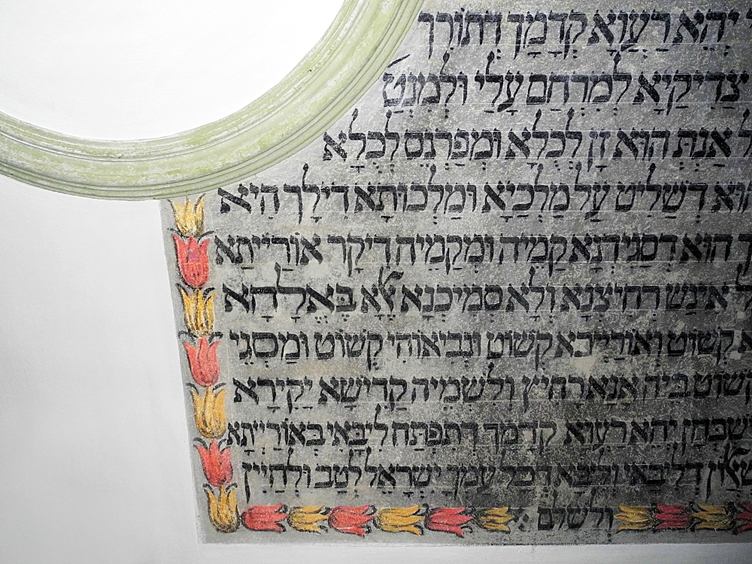 יהא רעוא קדמך דתורך
צדיקיא למרחם עלי ולמנט
אנת הוא זן לכלא ומפרנס לכלא
הוא דשליט על מלכיא ומלכותא דילך היא
הוא דסגידנא קמיה ומקמיה דיקר אורייתא
אינש רחיצנא ולא סמיכנא אלא באלהא
קשוט ואורייתא קשוט ונביאוהי קשוט ומסגי
קשוט ביה אנא רחיץ ולשמיה קדישא יקירא
שבחן יהא רעוא קדמך דתפתח ליבאי באורייתא
דליבאי וליבא דכל עמך ישראל לטב ולחיין
ולשלם: